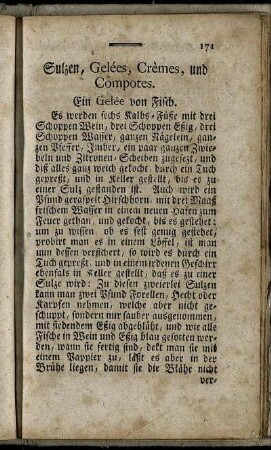 171
Sulzen, Gelées, Crèmes, und
Compotes.
Ein Gelée von Fisch.
Es werden sechs Kalbs-Füße mit drei
Schoppen Wein, drei Schoppen Eßig, drei
Schoppen Wasser, ganzen Nägelein, gan-
zen Pfeffer, Imber, ein paar ganzen Zwie-
beln und Zitronen-Scheiben zugesezt, und
diß alles ganz weich gekocht, durch ein Tuch
gepreßt, und in Keller gestellt, bis es zu
einer Sulz gestanden ist. Auch wird ein
Pfund geraspelt Hirschhorn, mit drei Maaß
frischem Wasser in einem neuen Hafen zum
Feuer gethan, und gekocht, bis es gestehet;
um zu wissen ob es fest genug gestehet,
probirt man es in einem Löffel, ist man
nun dessen versichert, so wird es durch ein
Tuch gepreßt, und in einem irdenen Geschirr
ebenfals in Keller gestellt, daß es zu einer
Sulze wird: Zu diesen zweierlei Sulzen
kann man zwei Pfund Forellen, Hecht oder
Karpfen nehmen, welche aber nicht ge-
schuppt, sondern nur sauber ausgenommen,
mit siedendem Eßig abgebläht, und wie alle
Fische in Wein und Eßig blau gesotten wer-
den, wann sie fertig sind, dekt man sie mit
einem Pappier zu, läßt es aber in der
Brühe liegen, damit sie die Blähe nicht
ver-